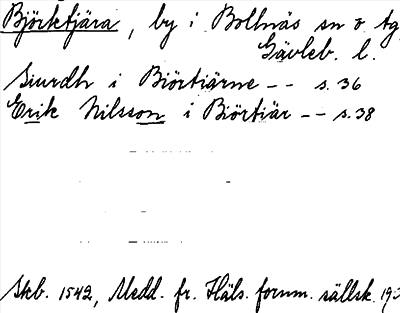 Björktjära, by i Bollnäs sn o tg
Gävleb. l.
Siurdh i Biörtiärne -- s. 36
Erik Nilsson i Biörtiär -- s. 38
Skb. 1542, Medd. fr. Häls. fornm. sällsk. 193